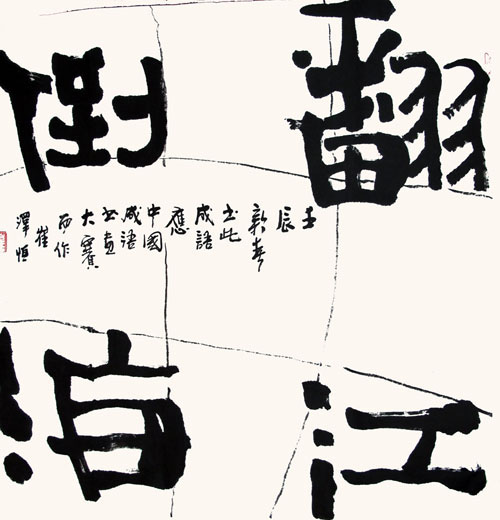 翻江
倒海
壬
辰
新春
书此
成語
應
中國
成語
书畫
大賽
而作
崔
澤恒